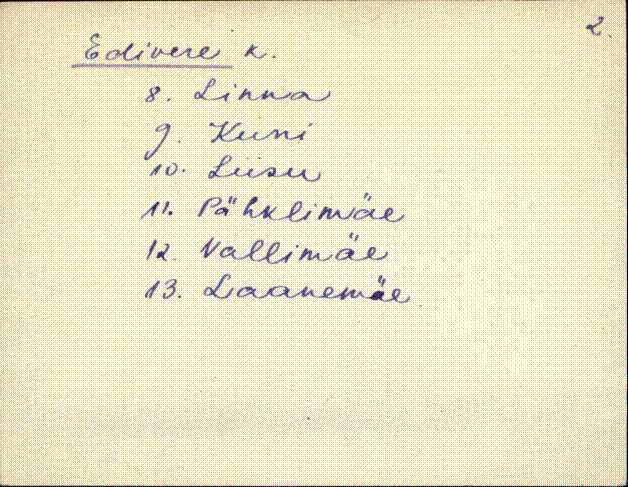 2.
Edivere k.
8. Linna
9. Kusni
10. Liisu
11. Pähklimäe
12. Vallimäe
13. Laanemäe